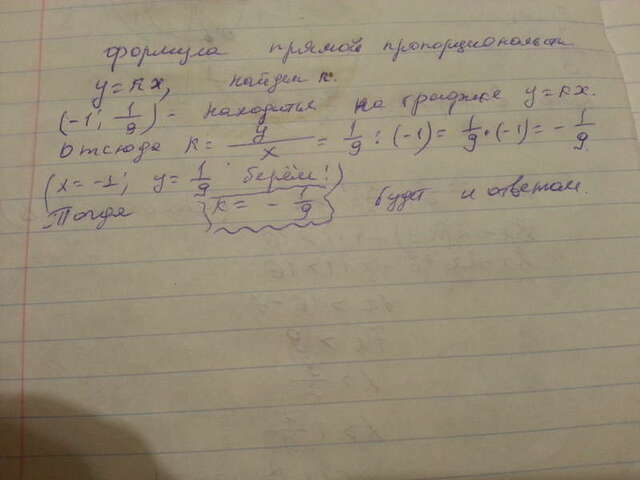 формула прямой пропорциональности
y=kx, найдем k.
(-1; 1/9) - находится на графике y=kx.
Отсюда k= y/x = 1/9 : (-1)= 1/9 • (-1)= - 1/9
(x=-1; y= 1/9 берём!)
Тогда k= - 1/9 будет и ответом.